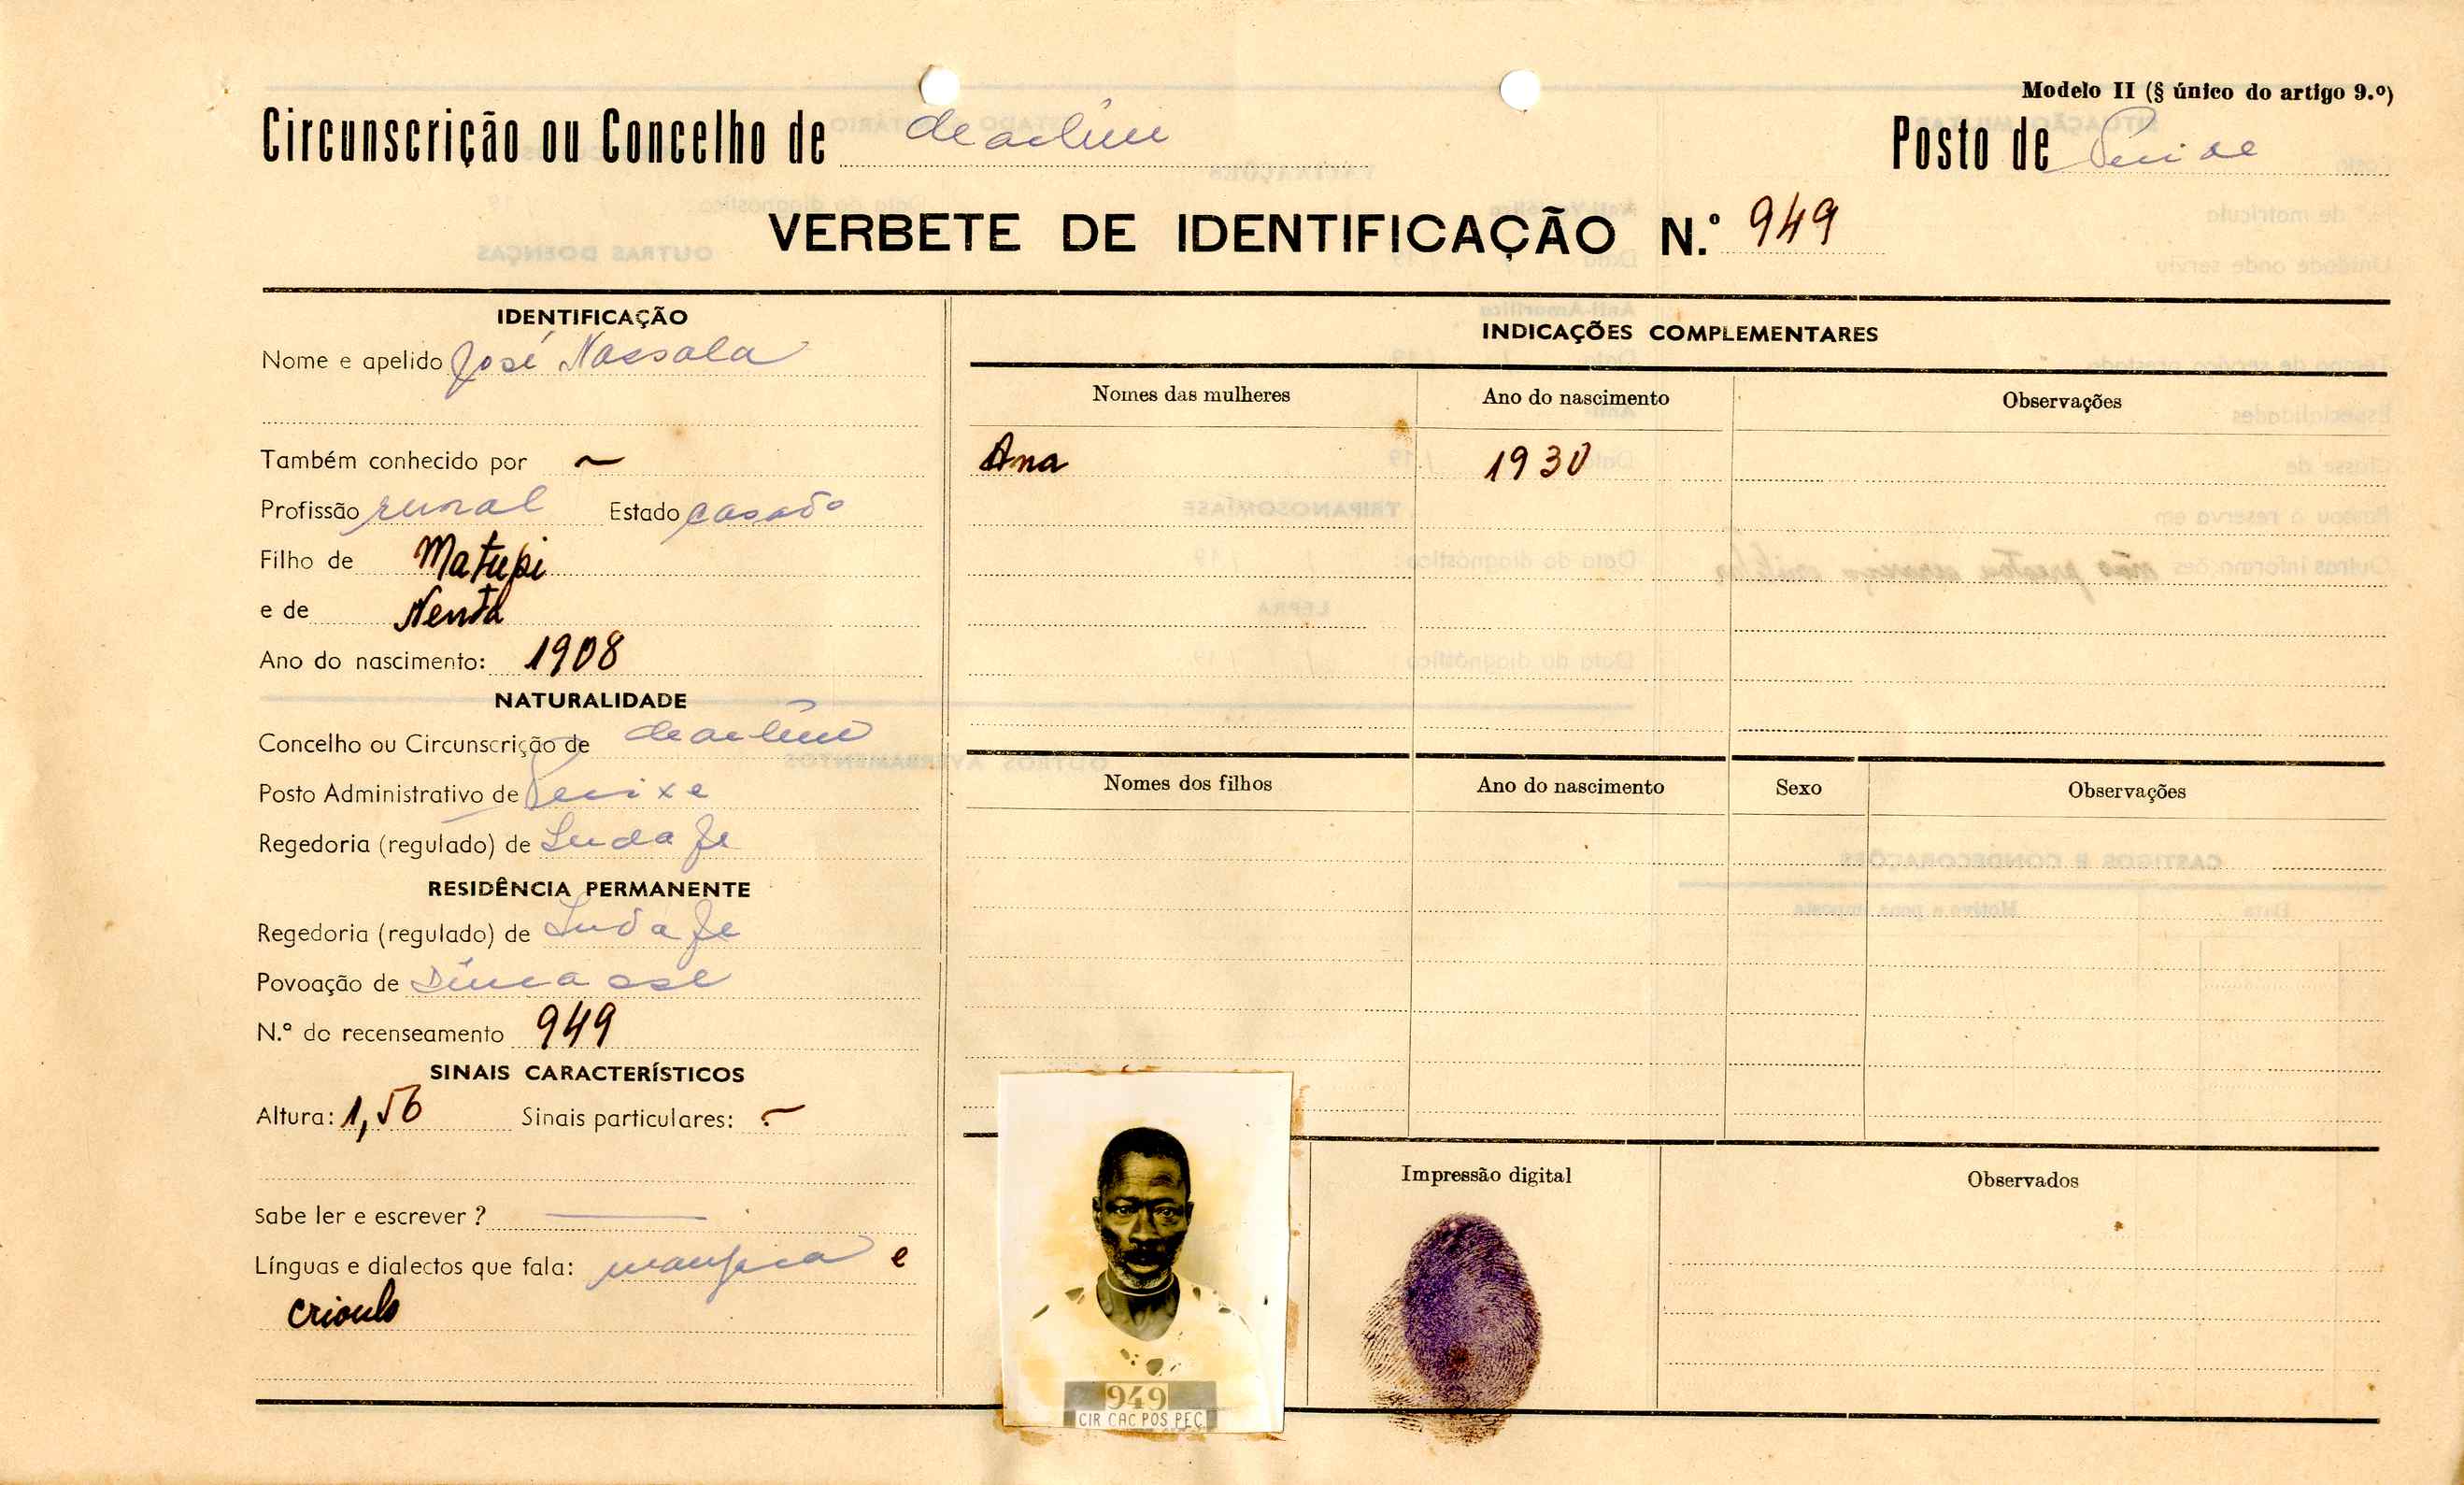 Modelo II (§ único do artigo 9.º)
Circunscrição ou Concelho de
Posto de
VERBETE DE IDENTIFICAÇÃO N.º 949
IDENTIFICAÇÃO
Nome e apelido José Nassala
Também conhecido por ~
Profissão rural Estado casado
Filho de Matupi
e de Nenta
Ano do nascimento: 1908
NATURALIDADE
Concelho ou Circunscrição de
Posto Administrativo de
Regedoria (regulado) de
RESIDÊNCIA PERMANENTE
Regedoria (regulado) de
Povoação de
N.º do recenseamento 949
SINAIS CARACTERÍSTICOS
Altura: 1,56 Sinais particulares: ~
Sabe ler e escrever ? —
Línguas e dialectos que fala: e
crioulo
INDICAÇÕES COMPLEMENTARES
Nomes das mulheres Ano do nascimento Observações
Ana 1930
Nomes dos filhos Ano do nascimento Sexo Observações
949
CIR CAC POS PEÇ
Impressão digital
Observados